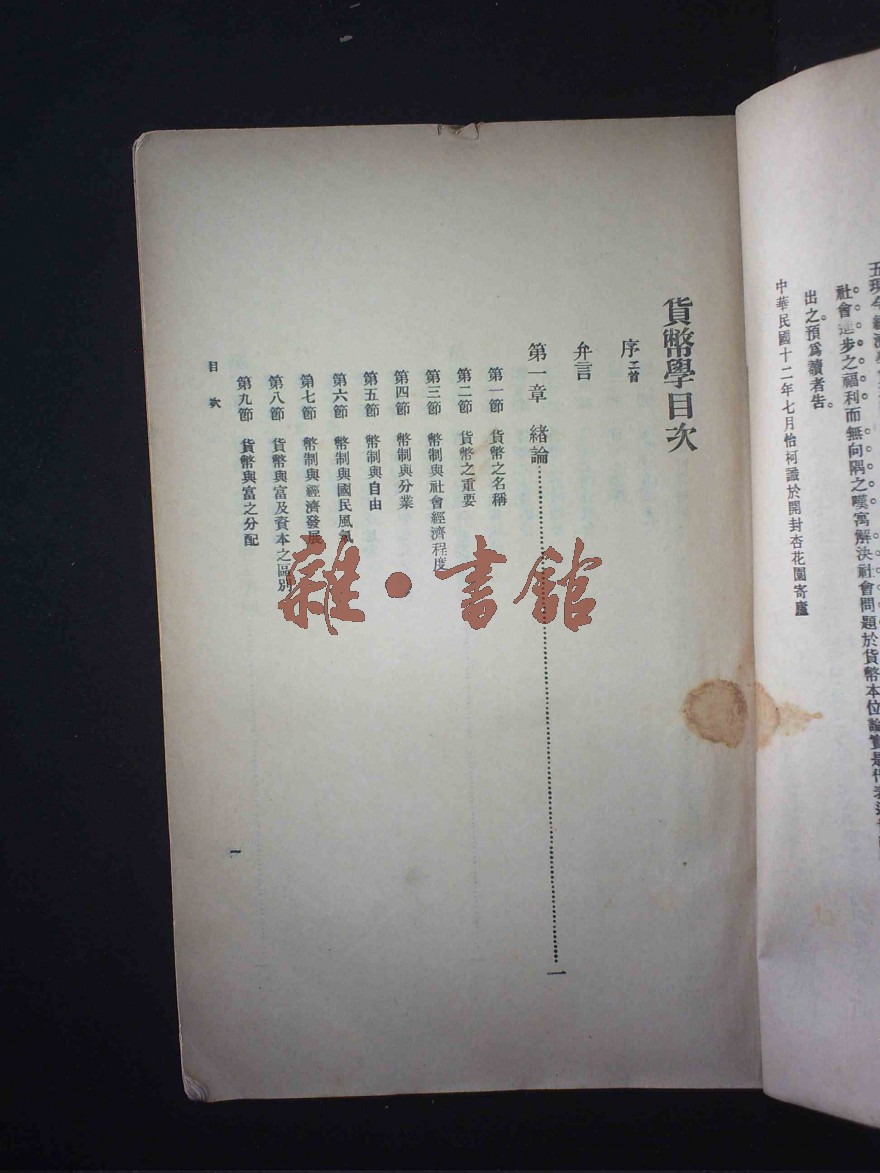 社會進步之福利而無向隅之嘆寓解決社會問題於貨幣本位論實是
出之預爲讀者告。
中華民國十二年七月怡柯識於開封杏花園寄廬
貨幣學目次
序二首
弁言
第一章 緒論……一
第一節 貨幣之名稱
第二節 貨幣之重要
第三節 幣制與社會經濟程度
第四節 幣制與分業
第五節 幣制與自由
第六節 幣制與國民風氣
第七節 幣制與經濟發展
第八節 貨幣與富及資本之區別
第九節 貨幣與富之分配
目次
一
雜·書館